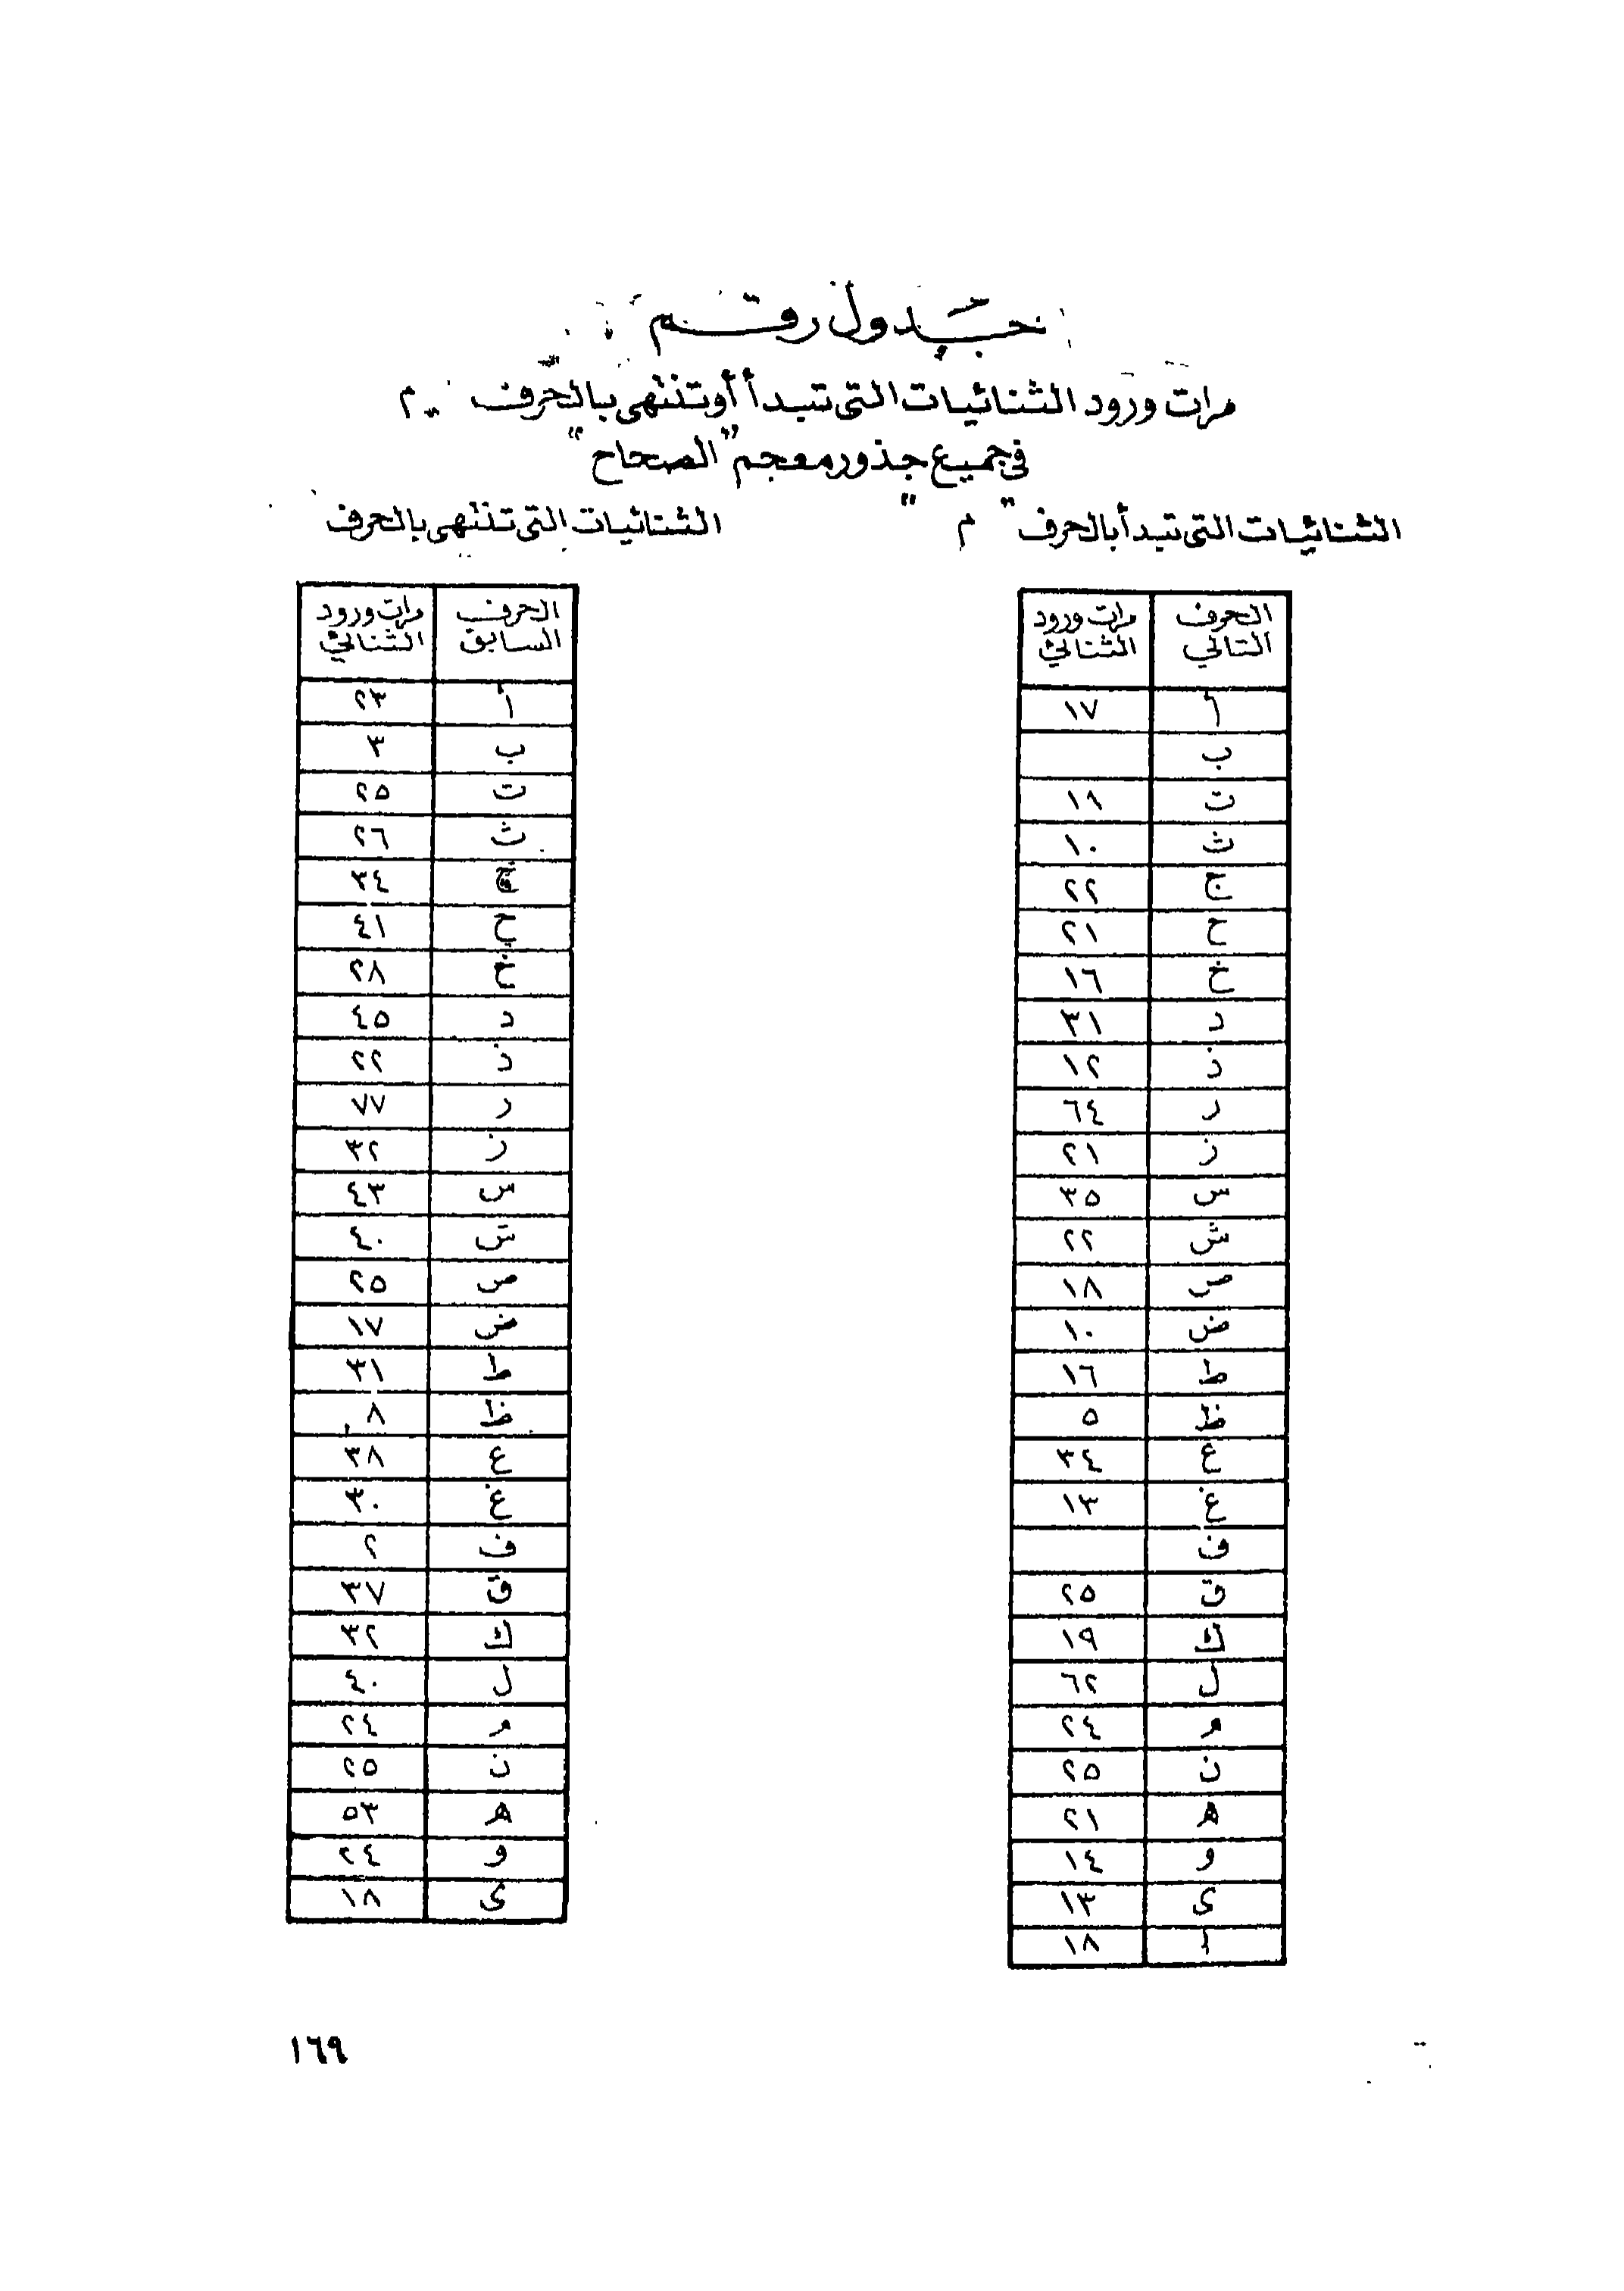 جدول رقم
مرات ورود الثنائيات التى تبدأ أو تنتهى بالحرف م
فى جميع جذور معجم "الصحاح"
الثنائيات التى تبدأ بالحرف "م"
الحرف التالي | مرات ورود الثنائي
أ | ١٧
ب |
ت | ١٩
ث | ١٠
ج | ٢٢
ح | ٢١
خ | ١٦
د | ٣١
ذ | ١٢
ر | ٦٤
ز | ٢١
س | ٣٥
ش | ٢٢
ص | ١٨
ض | ١٠
ط | ١٦
ظ | ٥
ع | ٣٤
غ | ١٣
ف |
ق | ٢٥
ك | ١٩
ل | ٦٢
م | ٢٤
ن | ٢٥
ه | ٢١
و | ١٤
ى | ١٣
١٨
الثنائيات التى تنتهى بالحرف
الحرف السابق | مرات ورود الثنائي
أ | ٢٣
ب | ٣
ت | ٢٥
ث | ٢٦
ج | ٣٤
ح | ٤١
خ | ٢٨
د | ٤٥
ذ | ٢٢
ر | ٧٧
ز | ٣٢
س | ٤٣
ش | ٤٠
ص | ٢٥
ض | ١٧
ط | ٣١
ظ | ٨
ع | ٣٨
غ | ٣٠
ف | ٢
ق | ٣٧
ك | ٣٢
ل | ٤٠
م | ٢٤
ن | ٢٥
ه | ٥٣
و | ٢٤
ى | ١٨
١٦٩